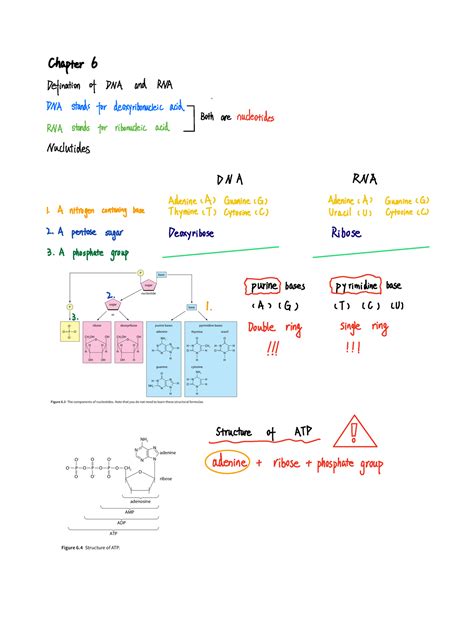 Chapter 6
Defination of DNA and RNA
DNA stands for deoxyribonucleic acid
RNA stands for ribonucleic acid
Both are nucleotides
Nuclutides
DNA RNA
1. A nitrogen containing base
Adenine (A) Guanine (G)
Thymine (T) Cytosine (C)
Adenine (A) Guanine (G)
Uracil (U) Cytosine (C)
2. A pentose sugar Deoxyribose Ribose
3. A phosphate group
P
base
sugar
nucleotide
1.
2.
3.
P
sugar
or
base
ribose deoxyribose purine bases pyrimidine bases
adenine thymine uracil
guanine cytosine
Figure 6.3 The components of nucleotides. Note that you do not need to learn these structural formulae.
purine bases
(A) (G)
Double ring
!!!
pyrimidine base
(T) (C) (U)
Single ring
!!!
Structure of ATP
!
adenine + ribose + phosphate group
NH₂
adenine
ribose
adenosine
AMP
ADP
ATP
Figure 6.4 Structure of ATP.